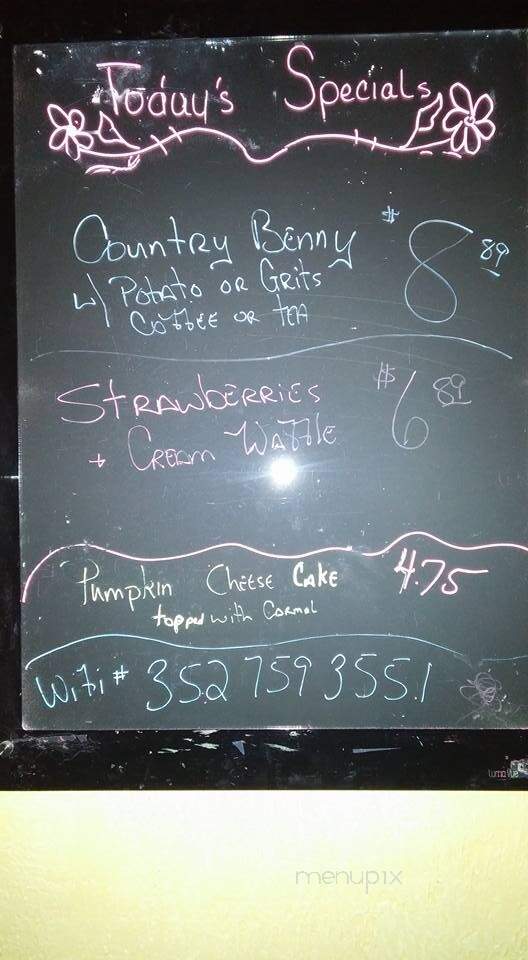 Today's Specials
Country Benny $8 89
w/ Potato or Grits
Coffee or Tea
Strawberries $6 89
+ Cream Waffle
Pumpkin Cheese Cake 4.75
topped with Carmel
Wifi # 352 759 3551
menupix